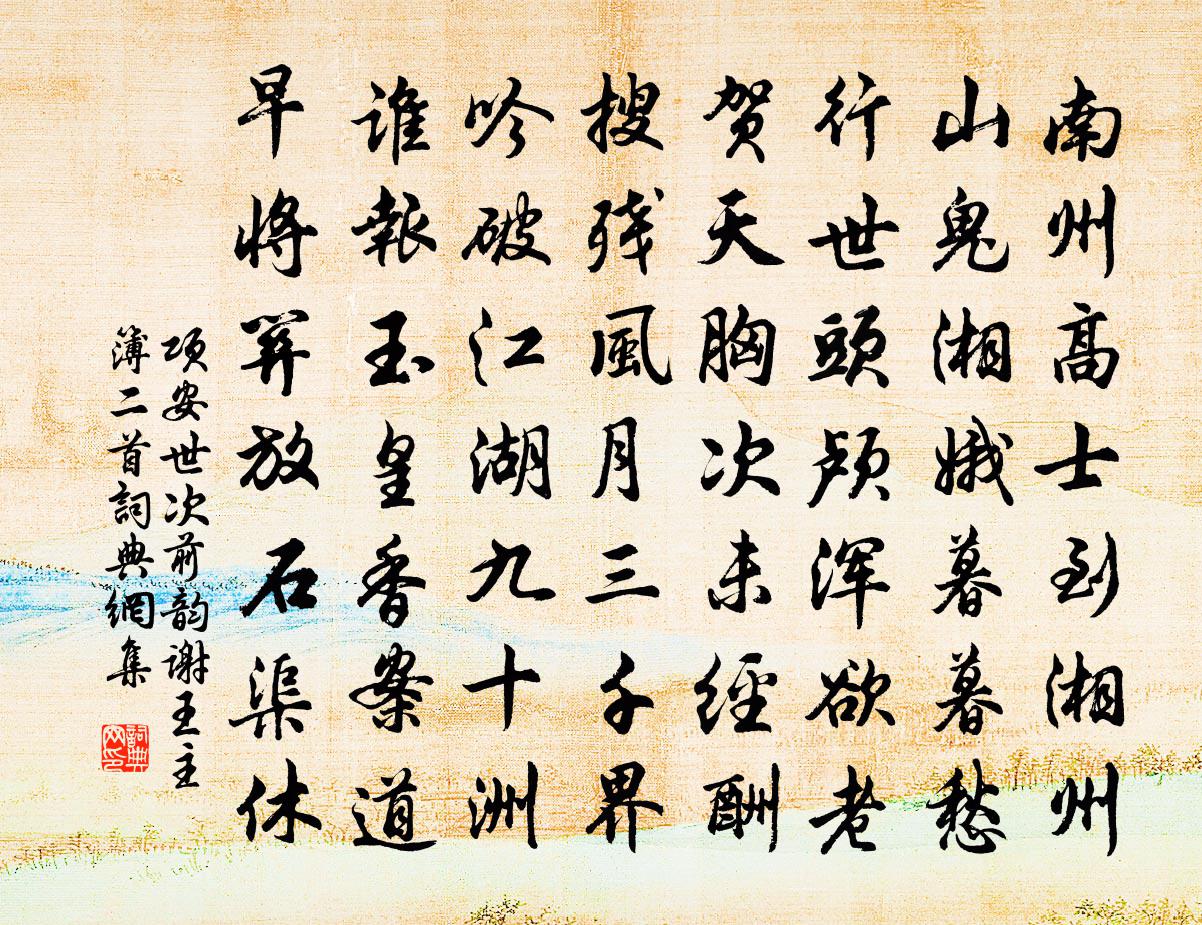 南州高士到湘州
山鬼湘娥暮暮愁
行世頭颅浑欲老
贺天胸次未經酬
搜残風月三千界
吟破江湖九十洲
誰報玉皇香案道
早將開放石渠休
項安世次前韵谢王主
簿二首詞典網集
詞典网印